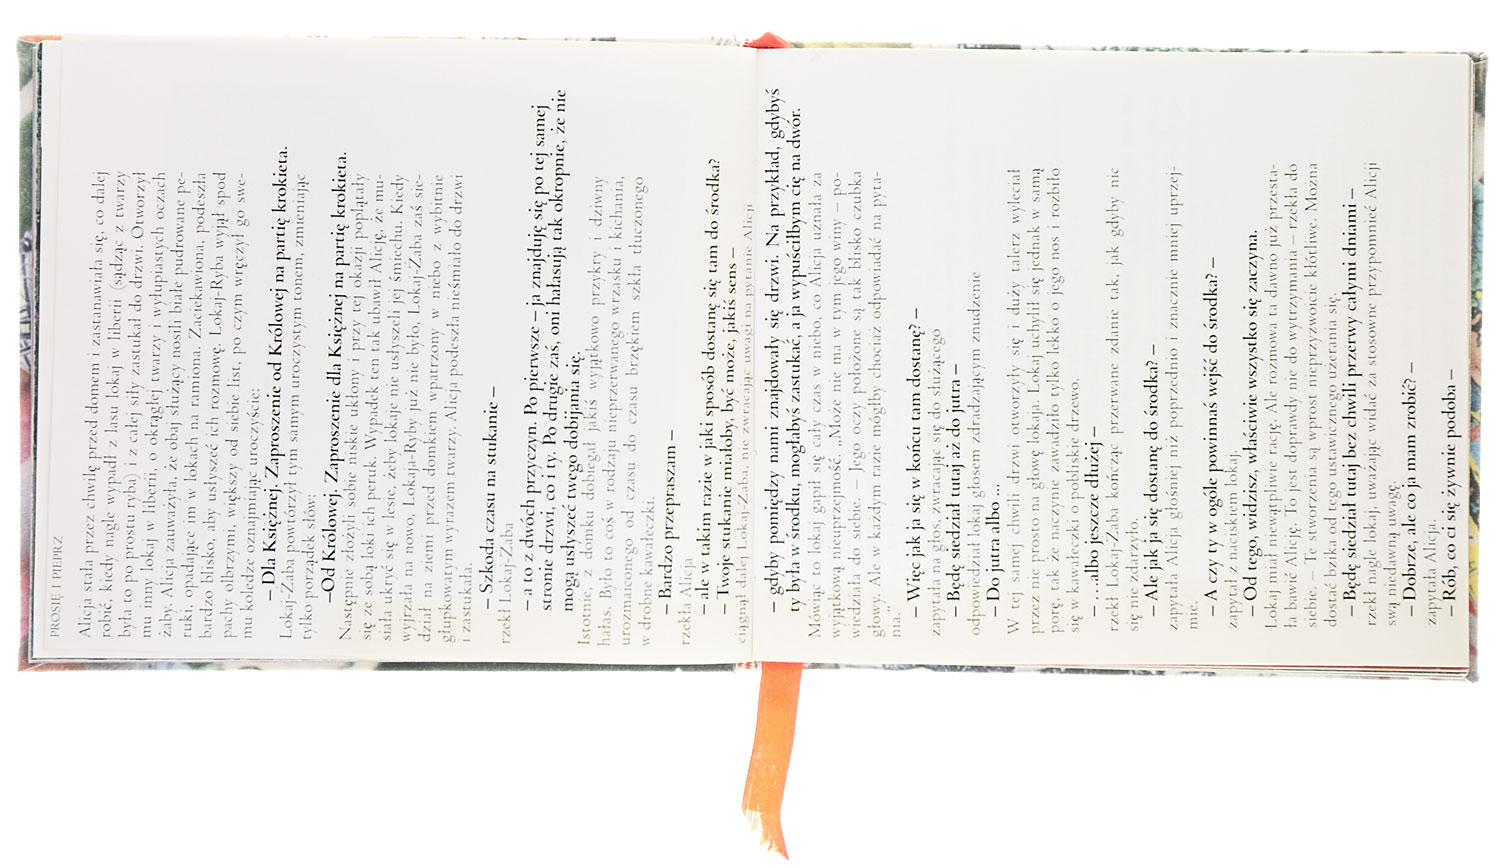 PROSIĘ I PIEPRZ
Alicja stała przez chwilę przed domem i zastanawiała się, co dalej
robić, kiedy nagle wypadł z lasu lokaj w liberii (sądząc z twarzy
była to po prostu ryba) i z całej siły zastukał do drzwi. Otworzył
mu inny lokaj w liberii, o okrągłej twarzy i wyłupiastych oczach
żaby. Alicja zauważyła, że obaj służący nosili białe pudrowane pe-
ruki, opadające im w lokach na ramiona. Zaciekawiona, podeszła
bardzo blisko, aby usłyszeć ich rozmowę. Lokaj-Ryba wyjął spod
pachy olbrzymi, większy od siebie list, po czym wręczył go swe-
mu koledze oznajmiając uroczyście:
– Dla Księżnej. Zaproszenie od Królowej na partię krokieta.
Lokaj-Żaba powtórzył tym samym uroczystym tonem, zmieniając
tylko porządek słów:
–Od Królowej. Zaproszenie dla Księżnej na partię krokieta.
Następnie złożyli sobie niskie ukłony i przy tej okazji poplątały
się ze sobą loki ich peruk. Wypadek ten tak ubawił Alicję, że mu-
siała ukryć się w lesie, żeby lokaje nie usłyszeli jej śmiechu. Kiedy
wyjrzała na nowo, Lokaja-Ryby już nie było, Lokaj-Żaba zaś sie-
dział na ziemi przed domkiem wpatrzony w niebo z wybitnie
głupkowatym wyrazem twarzy. Alicja podeszła nieśmiało do drzwi
i zastukała.
– Szkoda czasu na stukanie –
rzekł Lokaj-Żaba
– a to z dwóch przyczyn. Po pierwsze – ja znajduję się po tej samej
stronie drzwi, co i ty. Po drugie zaś, oni hałasują tak okropnie, że nie
mogą usłyszeć twego dobijania się.
Istotnie, z domku dobiegał jakiś wyjątkowo przykry i dziwny
hałas. Było to coś w rodzaju nieprzerwanego wrzasku i kichania,
urozmaiconego od czasu do czasu brzękiem szkła tłuczonego
w drobne kawałeczki.
– Bardzo przepraszam –
rzekła Alicja
– ale w takim razie w jaki sposób dostanę się tam do środka?
– Twoje stukanie miałoby, być może, jakiś sens –
ciągnął dalej Lokaj-Żaba, nie zwracając uwagi na pytanie Alicji
– gdyby pomiędzy nami znajdowały się drzwi. Na przykład, gdybyś
ty była w środku, mogłabyś zastukać, a ja wypuściłbym cię na dwór.
Mówiąc to lokaj gapił się cały czas w niebo, co Alicja uznała za
wyjątkową nieuprzejmość. „Może nie ma w tym jego winy – po-
wiedziała do siebie. – Jego oczy położone są tak blisko czubka
głowy. Ale w każdym razie mógłby chociaż odpowiadać na pyta-
nia."
– Więc jak ja się w końcu tam dostanę? –
zapytała na głos, zwracając się do służącego
– Będę siedział tutaj aż do jutra –
odpowiedział lokaj głosem zdradzającym znudzenie
– Do jutra albo ...
W tej samej chwili drzwi otworzyły się i duży talerz wyleciał
przez nie prosto na głowę lokaja. Lokaj uchylił się jednak w samą
porę, tak że naczynie zawadziło tylko lekko o jego nos i rozbiło
się w kawałeczki o pobliskie drzewo.
– …albo jeszcze dłużej –
rzekł Lokaj-Żaba kończąc przerwane zdanie tak, jak gdyby nic
się nie zdarzyło.
– Ale jak ja się dostanę do środka? –
zapytała Alicja głośniej niż poprzednio i znacznie mniej uprzej-
mie.
– A czy ty w ogóle powinnaś wejść do środka? –
zapytał z naciskiem lokaj.
– Od tego, widzisz, właściwie wszystko się zaczyna.
Lokaj miał niewątpliwie rację. Ale rozmowa ta dawno już przesta-
ła bawić Alicję. To jest doprawdy nie do wytrzymania – rzekła do
siebie. – Te stworzenia są wprost nieprzyzwoicie kłótliwe. Można
dostać bzika od tego ustawicznego użerania się.
– Będę siedział tutaj bez chwili przerwy całymi dniami –
rzekł nagle lokaj, uważając widać za stosowne przypomnieć Alicji
swą niedawną uwagę.
– Dobrze, ale co ja mam zrobić? –
zapytała Alicja.
– Rób, co ci się żywnie podoba –